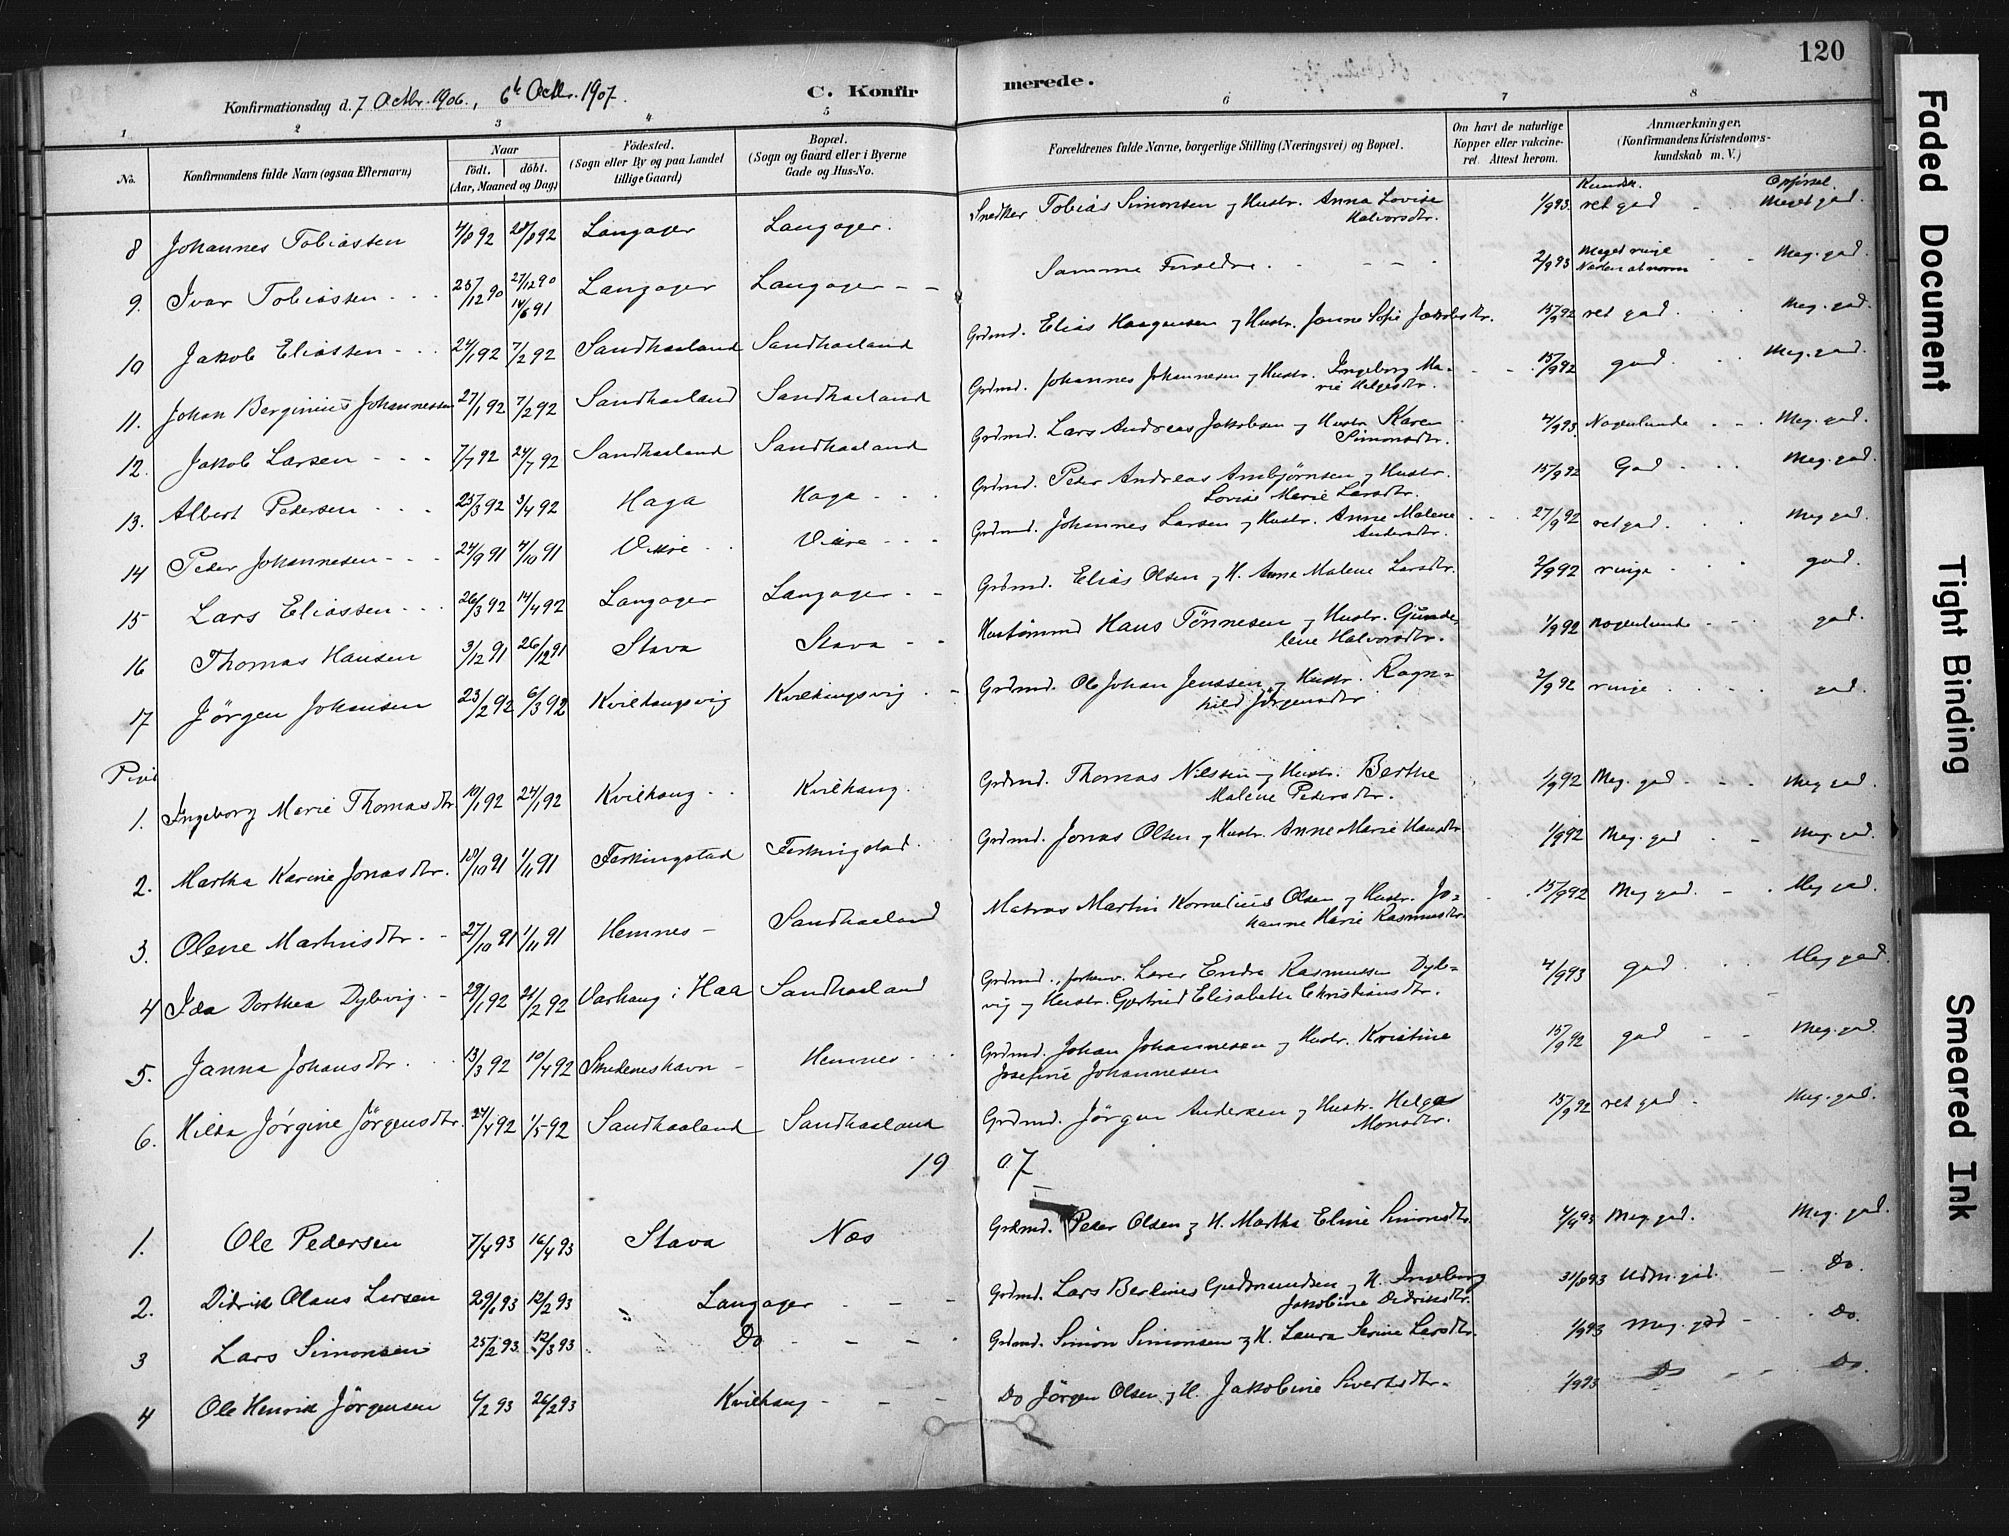 120
Konfirmationsdag d. 7 Octbr. 1906, 6te Octbr. 1907. C. Konfirmerede.
1 2 3 4 5 6 7 8
No. Konfirmandens fulde Navn (ogsaa Efternavn) Naar født. døbt. (Aar, Maaned og Dag) Fødested. (Sogn eller By og paa Landet tillige Gaard) Bopæl. (Sogn og Gaard eller i Byerne Gade og Hus-No. Forældrenes fulde Navne, borgerlige Stilling (Næringsvei) og Bopæl. Om havt de naturlige Kopper eller vakcineret. Attest herom. Anmærkninger. (Konfirmandens Kristendomskundskab m. V.)
Kundsk. Opførsel.
8 Johannes Tobiassen 4/8 92 28/8 92 Langager Langager. Snedker Tobias Simonsen og Hustr. Anna Lovise Halvorsdtr. 1/9 93. ret god Meget god.
9. Ivar Tobiassen 25/12 90 27/12 90 14/6 91 Langager Langager Samme Forældre. 2/9 93 Meget ringe Næsten abnorm Meg. god.
10 Jakob Eliassen 24/1 92 7/2 92 Sandhaaland Sandhaaland Grdmd. Elias Haagensen og Hustr. Janne Sofie Jakobsdtr. 15/9 92 ret god Meg. god.
11. Johan Berginius Johannessen 27/1 92 7/2 92 Sandhaaland Sandhaaland Grdmd. Johannes Johannesen og Hustr. Ingeborg Marie Helgesdtr. 15/9 92 god Meg. god.
12. Jakob Larsen 7/7 92 24/7 92 Sandhaaland Sandhaaland Grdmd. Lars Andreas Jakobsen og Hustr. Karen Simonsdtr. 4/9 93. Nogenlunde Meg. god.
13. Albert Pedersen 25/3 92 3/4 92 Haga Haga Grdmd. Peder Andreas Ambjørnsen og Hustr. Lovise Marie Larsdtr. 15/9 92 God Meg. god.
14 Peder Johannesen 24/9 91 4/10 91 Vikre Vikre Grdmd. Johannes Larsen og Hustr. Anne Malene Andersdtr. 27/9 92 ret god. Meg. god.
15 Lars Eliassen 26/3 92 14/4 92 Langager Langager Grdmd. Elias Olsen og H. Anna Malene Larsdtr. 2/9 92 ringe god.
16 Thomas Hansen 3/12 91 26/12 91 Stava Stava Hans Tønnesen og Hustr. Gundelene Halvorsdtr. 1/9 92 nogenlunde god.
17 Jørgen Johansen 23/2 92 6/3 92 Kvilhaugsvig Kvilhaugsvig Grdmd. Ole Johan Jenssen og Hustr. Ragnhild Jørgensdtr 2/9 92 ringe god.
1. Ingeborg Marie Thomasdtr 10/1 92 24/1 92 Kvilhaug Kvilhaug. Grdmd. Thomas Nilssen og Hustr. Berthe Malene Pedersdtr. 1/9 92 Meg. god Meg god.
2. Martha Karine Jonasdtr. 10/10 91 1/11 91 Ferkingstad Ferkingstad. Grdmd. Jonas Olsen og Hustr. Anne Marie Hansdtr 1/9 92 Meg. god Meg. god.
3. Olene Martinsdtr. 27/10 91 1/11 91 Hemnes Sandhaaland Matros Martin Kornelius Olsen og Hustr. Johanne Marie Rasmusdtr. 15/9 92 Meg god. Meg god.
4 Ida Dorthea Dybvig. 29/1 92 21/2 92 Varhaug i Haa Sandhaaland Grdmd., forhenv. Lærer Endre Rasmussen Dybvig og Hustr. Gjertrud Elisabeth Christiansdtr. 4/9 93 god Meg god.
5. Janna Johansdtr. 13/3 92 10/4 92 Skudeneshavn Hemnes Grdmd. Johan Johannesen og Hustr. Kristine Josefine Johannesen 15/9 92 god Meg. god.
6. Hilda Jørgine Jørgensdtr. 24/4 92 1/5 92 Sandhaaland Sandhaaland Grdmd. Jørgen Andersen og Hustr. Helga Monsdtr. 15/9 92 ret god Meg. god.
1907
1. Ole Pedersen 7/4 93 16/4 93 Stava Næs Grdmd. Peder Olsen og H. Martha Eline Simonsdtr. 4/9 93 Meg. god. Meg. god.
2. Didrik Olaus Larsen 29/1 93 12/2 93 Langager Grdmd. Lars Berlines Gudmundsen og H. Ingeborg Jakobine Didriksdtr. 31/8 93 Udm. god. Do.
3 Lars Simonsen 25/2 93 12/3 93 Do Grdmd. Simon Simonsen og H. Laura Serine Larsdtr. 1/9 93 Meg. god Do.
4 Ole Henrik Jørgensen 4/2 93 26/2 93 Kvilhaug Do Jørgen Olsen og H. Jakobine Sivertsdtr. 1/9 93 Do Do.
Faded Document
Tight Binding
Smeared Ink